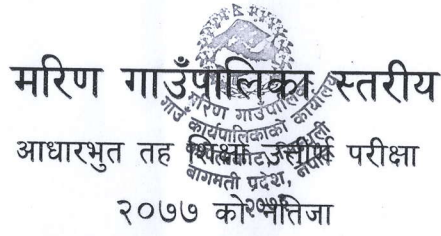 मरिण गाउँपालिका स्तरीय
आधारभुत तह शिक्षा उत्तीर्ण परीक्षा
२०७७ को नतिजा
मरिण गाउँपालिका
गाउँ कार्यपालिकाको कार्यालय
बागमती प्रदेश, नेपाल